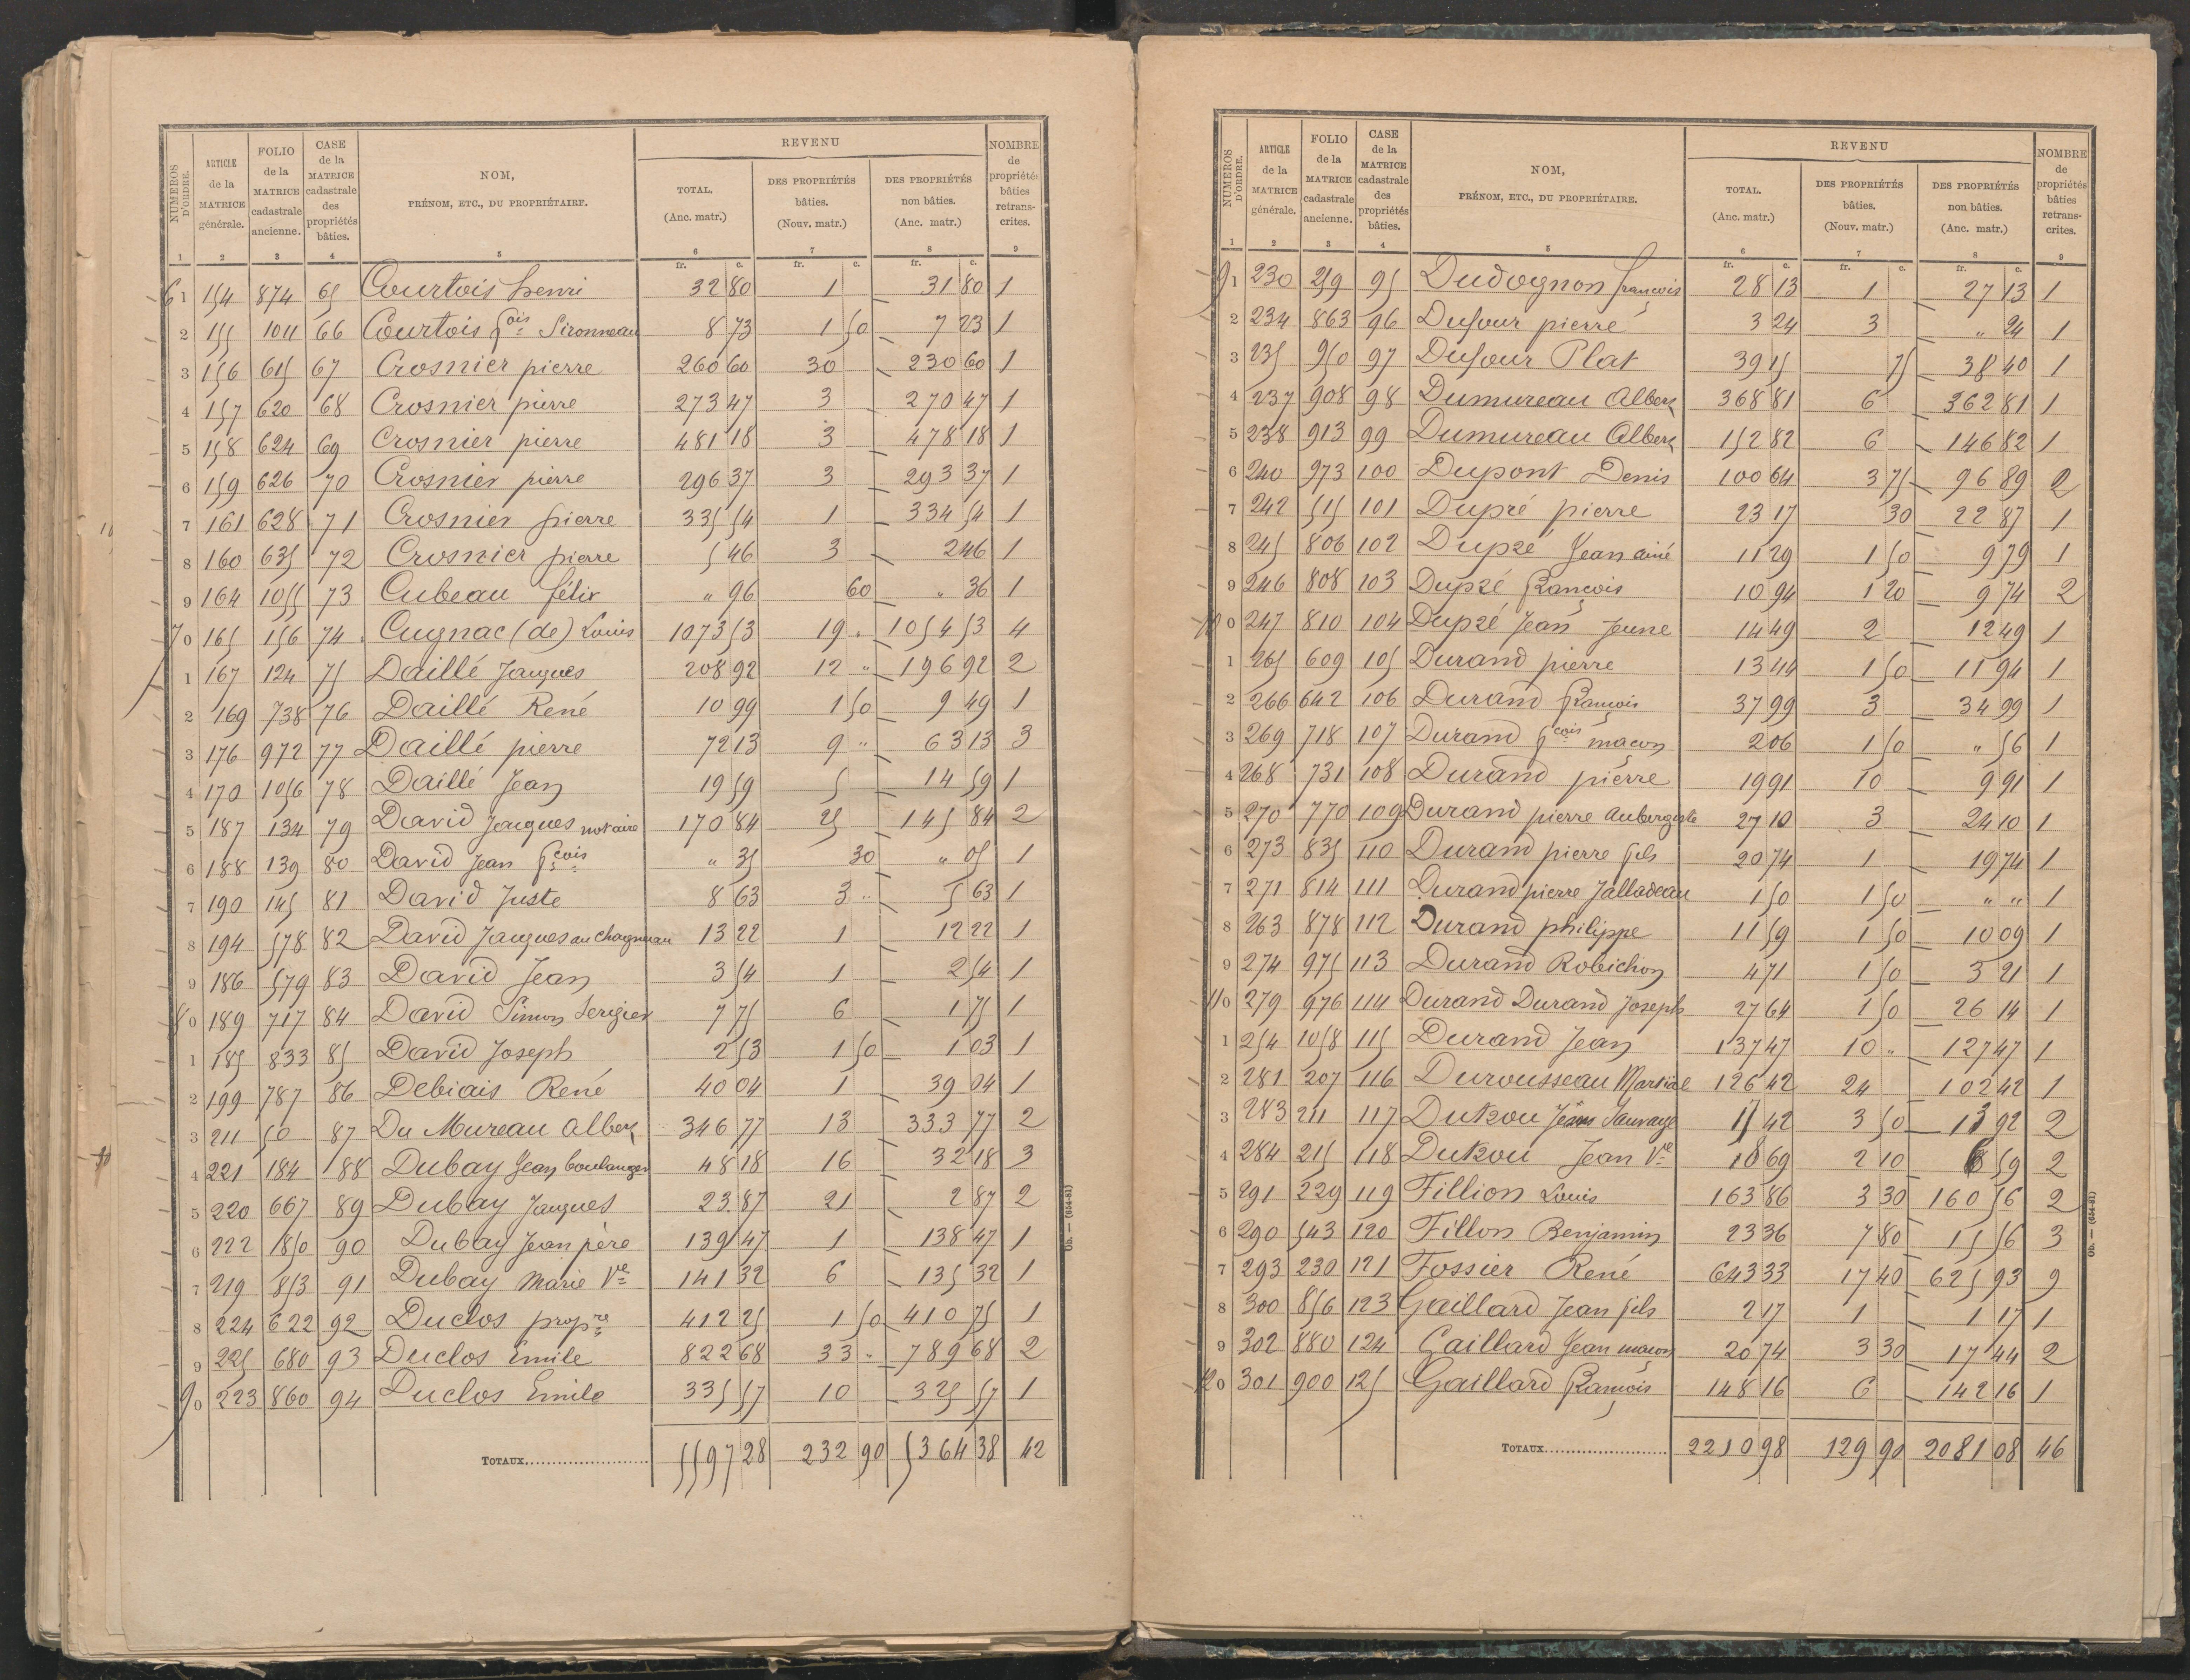 NUMÉROS D'ORDRE. | ARTICLE de la MATRICE générale. | FOLIO de la MATRICE cadastrale ancienne. | CASE de la MATRICE cadastrale des propriétés bâties. | NOM, PRÉNOM, ETC., DU PROPRIÉTAIRE. | REVENU | NOMBRE de propriétés bâties retranscrites.
TOTAL. (Anc. matr.) | DES PROPRIÉTÉS bâties. (Nouv. matr.) | DES PROPRIÉTÉS non bâties. (Anc. matr.)
1 | 2 | 3 | 4 | 5 | 6 | 7 | 8 | 9
fr. c. | fr. c. | fr. c.
61 | 154 | 874 | 65 | Courtois henri | 32 80 | 1 | 31 80 | 1
2 | 155 | 1011 | 66 | Courtois fois Sironneau | 8 73 | 1 50 | 7 23 | 1
3 | 156 | 615 | 67 | Crosnier pierre | 260 60 | 30 | 230 60 | 1
4 | 157 | 620 | 68 | Crosnier pierre | 273 47 | 3 | 270 47 | 1
5 | 158 | 624 | 69 | Crosnier pierre | 481 18 | 3 | 478 18 | 1
6 | 159 | 626 | 70 | Crosnier pierre | 296 37 | 3 | 293 37 | 1
7 | 161 | 628 | 71 | Crosnier pierre | 335 54 | 1 | 334 54 | 1
8 | 160 | 635 | 72 | Crosnier pierre | 5 46 | 3 | 2 46 | 1
9 | 164 | 1055 | 73 | Cubeau félix | " 96 | 60 | " 36 | 1
70 | 165 | 156 | 74 | Cugnac (de) Louis | 1073 53 | 19 " | 1054 53 | 4
1 | 167 | 124 | 75 | Daillé Jacques | 208 92 | 12 " | 196 92 | 2
2 | 169 | 738 | 76 | Daillé René | 10 99 | 1 50 | 9 49 | 1
3 | 176 | 972 | 77 | Daillé pierre | 72 13 | 9 " | 63 13 | 3
4 | 170 | 1056 | 78 | Daillé Jean | 19 59 | 5 | 14 59 | 1
5 | 187 | 134 | 79 | David Jacques notaire | 170 84 | 25 | 145 84 | 2
6 | 188 | 139 | 80 | David Jean fçois | " 35 | 30 | " 05 | 1
7 | 190 | 145 | 81 | David Juste | 8 63 | 3 " | 5 63 | 1
8 | 194 | 578 | 82 | David Jacques au chagneau | 13 22 | 1 | 12 22 | 1
9 | 186 | 579 | 83 | David Jean | 3 54 | 1 | 2 54 | 1
80 | 189 | 717 | 84 | David Simon Serigier | 7 75 | 6 | 1 75 | 1
1 | 185 | 833 | 85 | David Joseph | 2 53 | 1 50 | 1 03 | 1
2 | 199 | 787 | 86 | Debiais René | 40 04 | 1 | 39 04 | 1
3 | 211 | 50 | 87 | Du Mureau Albert | 346 77 | 13 | 333 77 | 2
4 | 221 | 184 | 88 | Dubay Jean boulanger | 48 18 | 16 | 32 18 | 3
5 | 220 | 667 | 89 | Dubay Jacques | 23 87 | 21 | 2 87 | 2
6 | 222 | 850 | 90 | Dubay Jean père | 139 47 | 1 | 138 47 | 1
7 | 219 | 853 | 91 | Dubay Marie Ve | 141 32 | 6 | 135 32 | 1
8 | 224 | 622 | 92 | Duclos propre | 412 25 | 1 50 | 410 75 | 1
9 | 225 | 680 | 93 | Duclos Emile | 822 68 | 33 " | 789 68 | 2
90 | 223 | 860 | 94 | Duclos Emile | 335 57 | 10 | 325 57 | 1
TOTAUX | 5597 28 | 232 90 | 5364 38 | 42
Ob. — (654-81)
NUMÉROS D'ORDRE. | ARTICLE de la MATRICE générale. | FOLIO de la MATRICE cadastrale ancienne. | CASE de la MATRICE cadastrale des propriétés bâties. | NOM, PRÉNOM, ETC., DU PROPRIÉTAIRE. | REVENU | NOMBRE de propriétés bâties retranscrites.
TOTAL. (Anc. matr.) | DES PROPRIÉTÉS bâties. (Nouv. matr.) | DES PROPRIÉTÉS non bâties. (Anc. matr.)
1 | 2 | 3 | 4 | 5 | 6 | 7 | 8 | 9
fr. c. | fr. c. | fr. c.
91 | 230 | 259 | 95 | Dudognon françois | 28 13 | 1 | 27 13 | 1
2 | 234 | 863 | 96 | Dufour pierre | 3 24 | 3 | " 24 | 1
3 | 235 | 950 | 97 | Dufour Plat | 39 15 | 75 | 38 40 | 1
4 | 237 | 908 | 98 | Dumureau Albert | 368 81 | 6 | 362 81 | 1
5 | 238 | 913 | 99 | Dumureau Albert | 152 82 | 6 | 146 82 | 1
6 | 240 | 973 | 100 | Dupont Denis | 100 64 | 3 75 | 96 89 | 2
7 | 242 | 515 | 101 | Dupré pierre | 23 17 | 30 | 22 87 | 1
8 | 245 | 806 | 102 | Dupré Jean ainé | 11 29 | 1 50 | 9 79 | 1
9 | 246 | 808 | 103 | Dupré françois | 10 94 | 1 20 | 9 74 | 2
100 | 247 | 810 | 104 | Dupré Jean Jeune | 14 49 | 2 | 12 49 | 1
1 | 265 | 609 | 105 | Durand pierre | 13 44 | 1 50 | 11 94 | 1
2 | 266 | 642 | 106 | Durand françois | 37 99 | 3 | 34 99 | 1
3 | 269 | 718 | 107 | Durand fçois maçon | 2 06 | 1 50 | " 56 | 1
4 | 268 | 731 | 108 | Durand pierre | 19 91 | 10 | 9 91 | 1
5 | 270 | 770 | 109 | Durand pierre Aubergiste | 27 10 | 3 | 24 10 | 1
6 | 273 | 835 | 110 | Durand pierre fils | 20 74 | 1 | 19 74 | 1
7 | 271 | 814 | 111 | Durand pierre Jalladeau | 1 50 | 1 50 | " " | 1
8 | 263 | 878 | 112 | Durand philippe | 11 59 | 1 50 | 10 09 | 1
9 | 274 | 975 | 113 | Durand Robichon | 4 71 | 1 50 | 3 21 | 1
110 | 279 | 976 | 114 | Durand Durand Joseph | 27 64 | 1 50 | 26 14 | 1
1 | 254 | 1058 | 115 | Durand Jean | 137 47 | 10 " | 127 47 | 1
2 | 281 | 207 | 116 | Durousseau Martial | 126 42 | 24 | 102 42 | 1
3 | 283 | 211 | 117 | Dutrou Jean Sauvage | 15 42 | 3 50 | 11 92 | 2
4 | 284 | 215 | 118 | Dutrou Jean Ve | 10 69 | 2 10 | 8 59 | 2
5 | 291 | 229 | 119 | Fillion Louis | 163 86 | 3 30 | 160 56 | 2
6 | 290 | 543 | 120 | Fillon Benjamin | 23 36 | 7 80 | 15 56 | 3
7 | 293 | 230 | 121 | Fossier René | 643 33 | 17 40 | 625 93 | 9
8 | 300 | 856 | 123 | Gaillard Jean fils | 2 17 | 1 | 1 17 | 1
9 | 302 | 880 | 124 | Gaillard Jean maçon | 20 74 | 3 30 | 17 44 | 2
120 | 301 | 900 | 125 | Gaillard françois | 148 16 | 6 | 142 16 | 1
TOTAUX | 2210 98 | 129 90 | 2081 08 | 46
Ob. — (654-81)